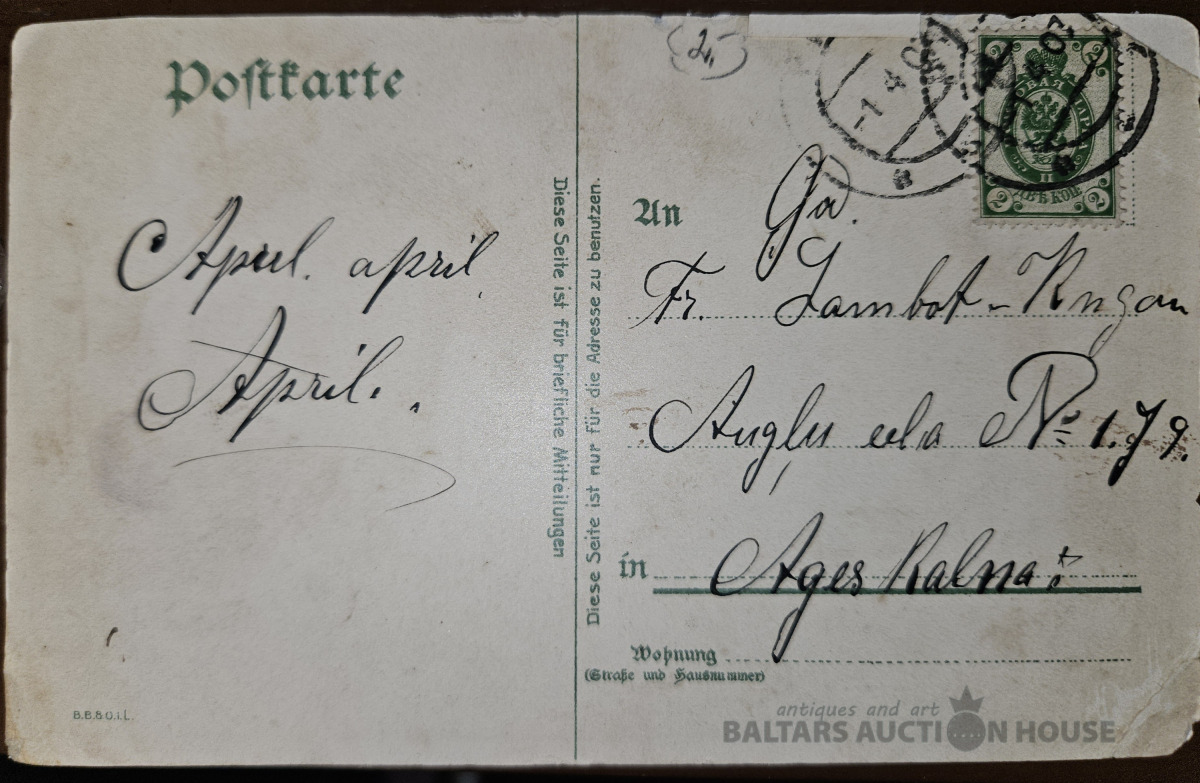 Postkarte
April. april,
April.
B.B.&O.i.L.
Diese Seite ist für briefliche Mitteilungen
Diese Seite ist nur für die Adresse zu benutzen.
2,-
-1 4 07
в
2 2
2 ДВѢ КОП 2
An
Ga.
Fr. Lambot-Kngau
Anglu eela № 179.
in Ages Kalna
Wohnung
(Straße und Hausnummer)
antiques and art
BALTARS AUCTION HOUSE